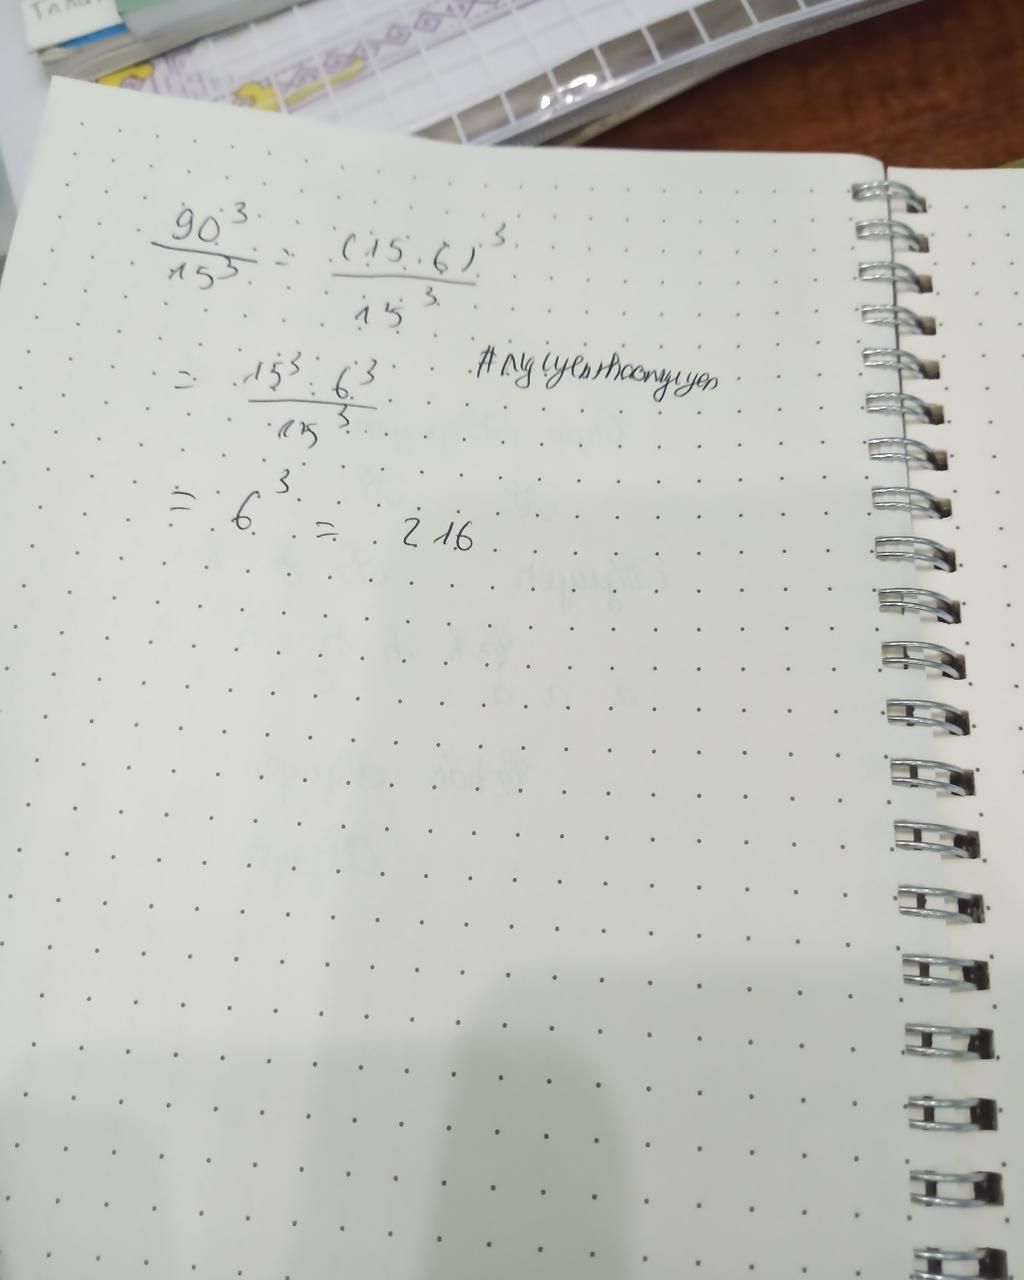 90³/15³ = (15.6)³/15³
= 15³.6³/15³ #nguyenthaonguyen
= 6³ = 216